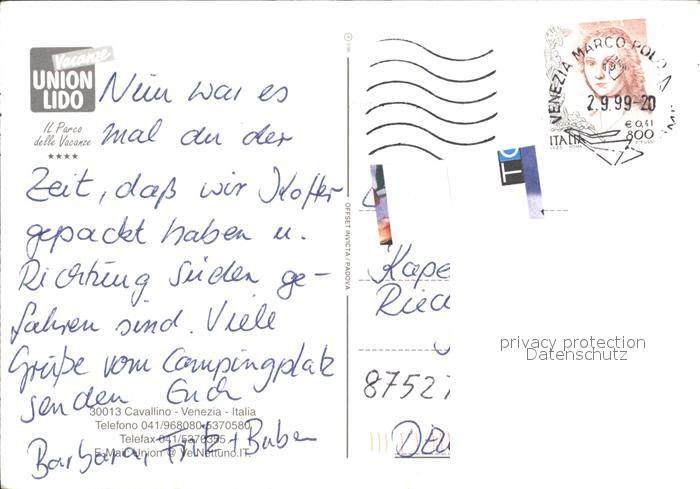 Vacanze
UNION
LIDO
IL Parco
delle Vacanze
Nun war es
mal an der
Zeit, daß wir Koffer
gepackt haben u.
Richtung Süden ge-
fahren sind. Viele
Grüße vom Campingplatz
senden Euch
Barbara, Fritz + Buben
30013 Cavallino - Venezia - Italia
Telefono 041/968080-5370580
Telefax 041/5370355
OFFSET INVICTA / PADOVA
VENEZIA MARCO POLO
2.9.99-20
€ 0,41
ITALIA 800
Kape
Ried
8752
DEU
privacy protection
Datenschutz